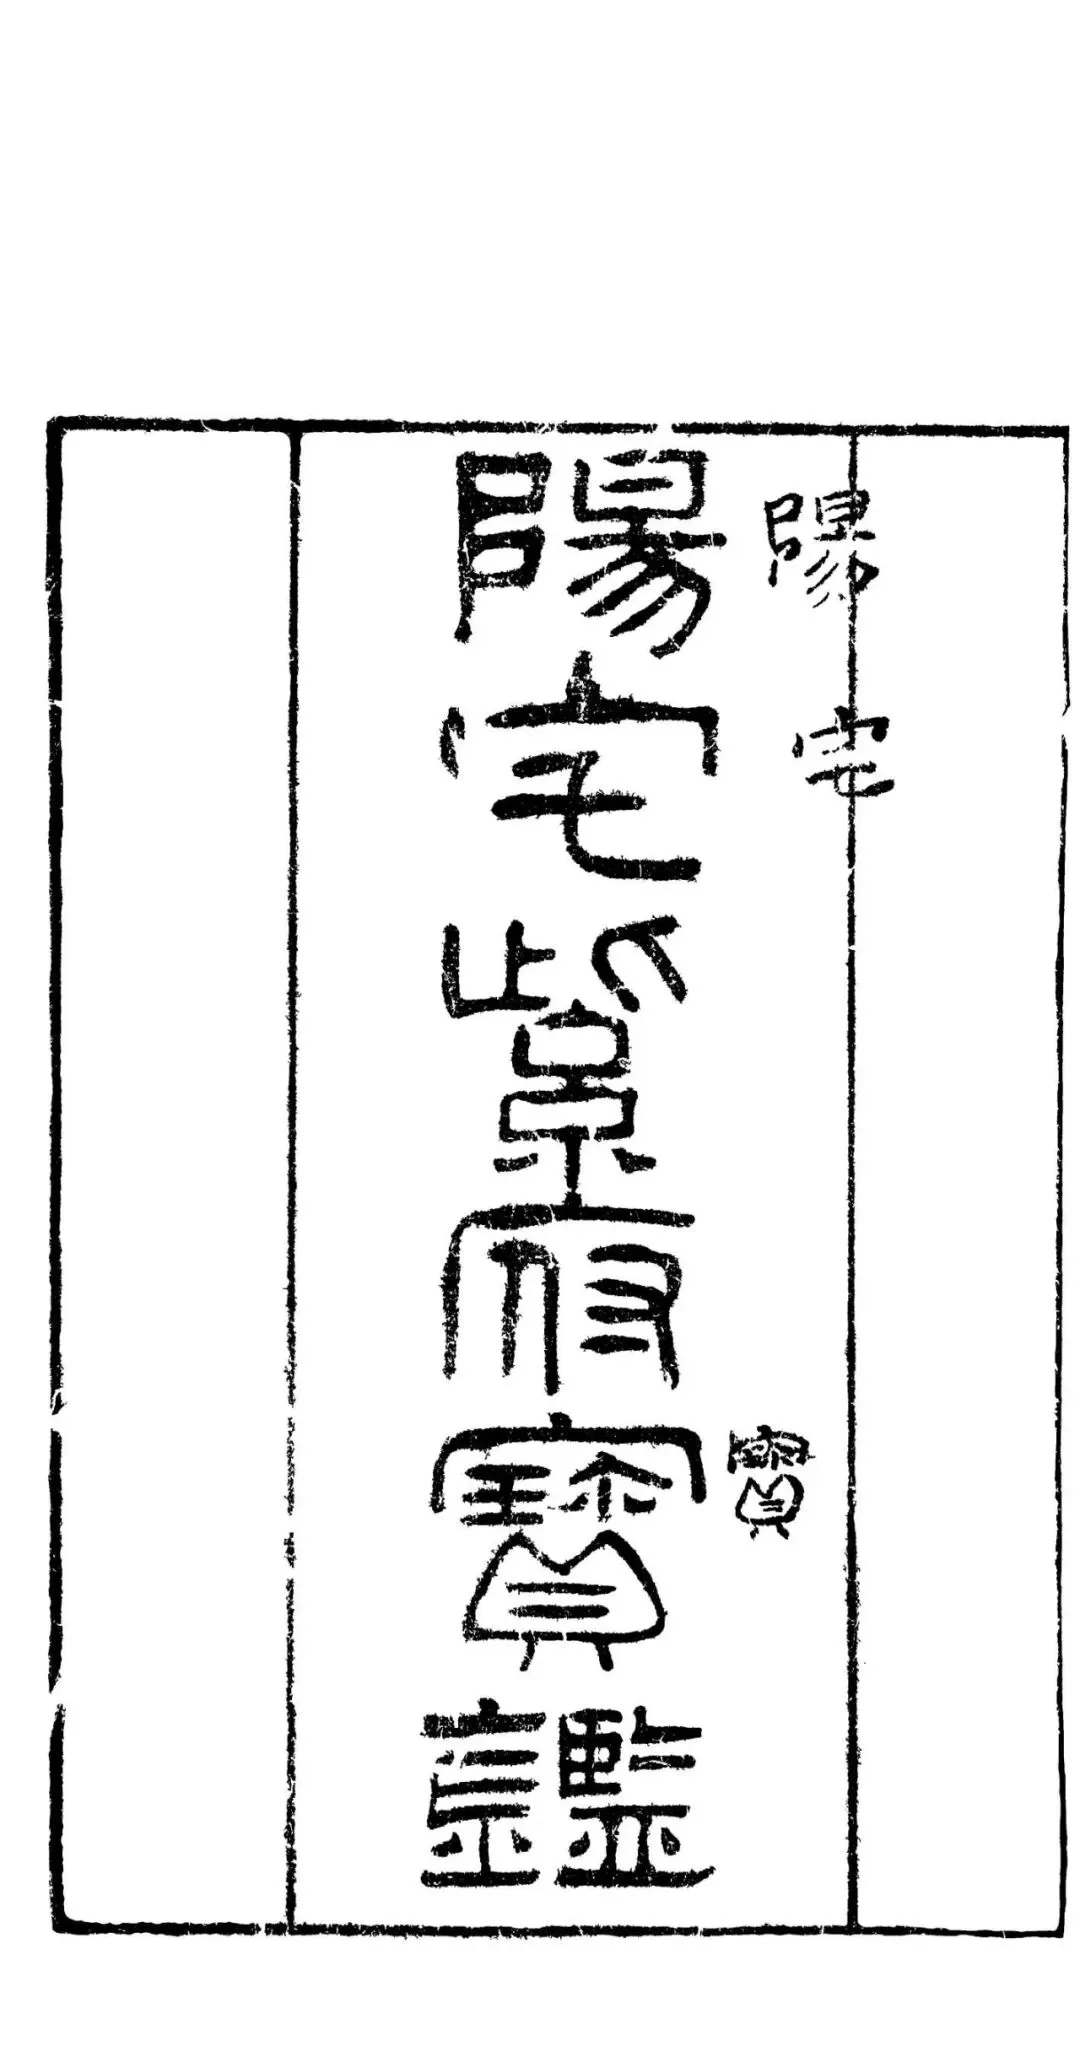 陽宅紫府寶鑑
陽宅
寶